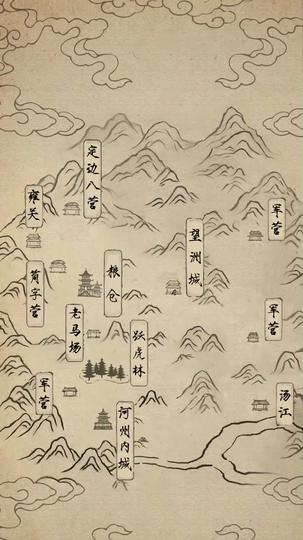 定边八营
雍关
军营
望洲城
粮仓
简字营
老马场
军营
跃虎林
军营
汤江
河州内城